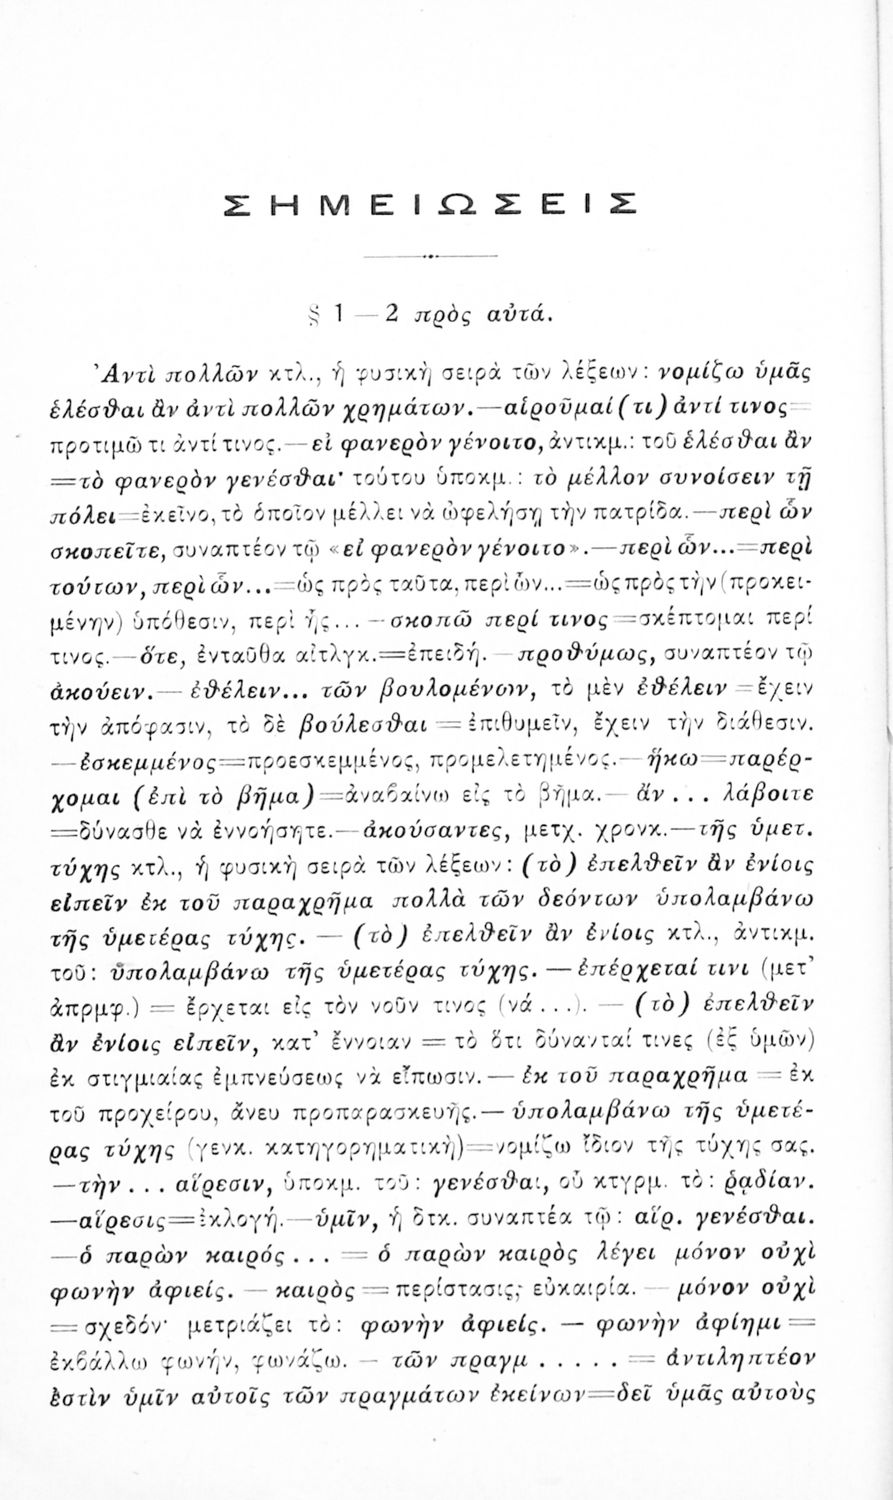 ΣΗΜΕΙΩΣΕΙΣ
§ 1 — 2 πρὸς αὐτά.
Ἀντὶ πολλῶν κτλ., ἡ φυσικὴ σειρὰ τῶν λέξεων: νομίζω ὑμᾶς
ἑλέσθαι ἂν ἀντὶ πολλῶν χρημάτων.—αἱροῦμαί (τι) ἀντί τινος=
προτιμῶ τι ἀντί τινος.—εἰ φανερὸν γένοιτο, ἀντικμ.: τοῦ ἑλέσθαι ἂν
=τὸ φανερὸν γενέσθαι· τούτου ὑποκμ.: τὸ μέλλον συνοίσειν τῇ
πόλει=ἐκεῖνο, τὸ ὁποῖον μέλλει νὰ ὠφελήσῃ τὴν πατρίδα.—περὶ ὧν
σκοπεῖτε, συναπτέον τῷ «εἰ φανερὸν γένοιτο».—περὶ ὧν...=περὶ
τούτων, περὶ ὧν...=ὡς πρὸς ταῦτα, περὶ ὧν...=ὡς πρὸς τὴν (προκει-
μένην) ὑπόθεσιν, περὶ ἧς... —σκοπῶ περί τινος=σκέπτομαι περί
τινος.—ὅτε, ἐνταῦθα αἰτλγκ.=ἐπειδή.—προθύμως, συναπτέον τῷ
ἀκούειν.—ἐθέλειν... τῶν βουλομένων, τὸ μὲν ἐθέλειν=ἔχειν
τὴν ἀπόφασιν, τὸ δὲ βούλεσθαι=ἐπιθυμεῖν, ἔχειν τὴν διάθεσιν.
—ἐσκεμμένος=προεσκεμμένος, προμελετημένος.—ἥκω=παρέρ-
χομαι (ἐπὶ τὸ βῆμα)=ἀναβαίνω εἰς τὸ βῆμα.—ἂν... λάβοιτε
=δύνασθε νὰ ἐννοήσητε.—ἀκούσαντες, μετχ. χρονκ.—τῆς ὑμετ.
τύχης κτλ., ἡ φυσικὴ σειρὰ τῶν λέξεων: (τὸ) ἐπελθεῖν ἂν ἐνίοις
εἰπεῖν ἐκ τοῦ παραχρῆμα πολλὰ τῶν δεόντων ὑπολαμβάνω
τῆς ὑμετέρας τύχης. — (τὸ) ἐπελθεῖν ἂν ἐνίοις κτλ., ἀντικμ.
τοῦ: ὑπολαμβάνω τῆς ὑμετέρας τύχης.—ἐπέρχεταί τινι (μετ᾽
ἀπρμφ.) = ἔρχεται εἰς τὸν νοῦν τινος (νά...). — (τὸ) ἐπελθεῖν
ἂν ἐνίοις εἰπεῖν, κατ᾽ ἔννοιαν = τὸ ὅτι δύνανταί τινες (ἐξ ὑμῶν)
ἐκ στιγμιαίας ἐμπνεύσεως νὰ εἴπωσιν.—ἐκ τοῦ παραχρῆμα = ἐκ
τοῦ προχείρου, ἄνευ προπαρασκευῆς.—ὑπολαμβάνω τῆς ὑμετέ-
ρας τύχης (γενκ. κατηγορηματικὴ)=νομίζω ἴδιον τῆς τύχης σας.
—τὴν... αἵρεσιν, ὑποκμ. τοῦ: γενέσθαι, οὗ κτγρμ. τὸ: ῥᾳδίαν.
—αἵρεσις=ἐκλογή.—ὑμῖν, ἡ δτκ. συναπτέα τῷ: αἵρ. γενέσθαι.
—ὁ παρὼν καιρός... = ὁ παρὼν καιρὸς λέγει μόνον οὐχὶ
φωνὴν ἀφιείς. — καιρὸς = περίστασις, εὐκαιρία. — μόνον οὐχὶ
= σχεδόν· μετριάζει τὸ: φωνὴν ἀφιείς. — φωνὴν ἀφίημι =
ἐκβάλλω φωνήν, φωνάζω. — τῶν πραγμ..... = ἀντιληπτέον
ἐστὶν ὑμῖν αὐτοῖς τῶν πραγμάτων ἐκείνων=δεῖ ὑμᾶς αὐτοὺς